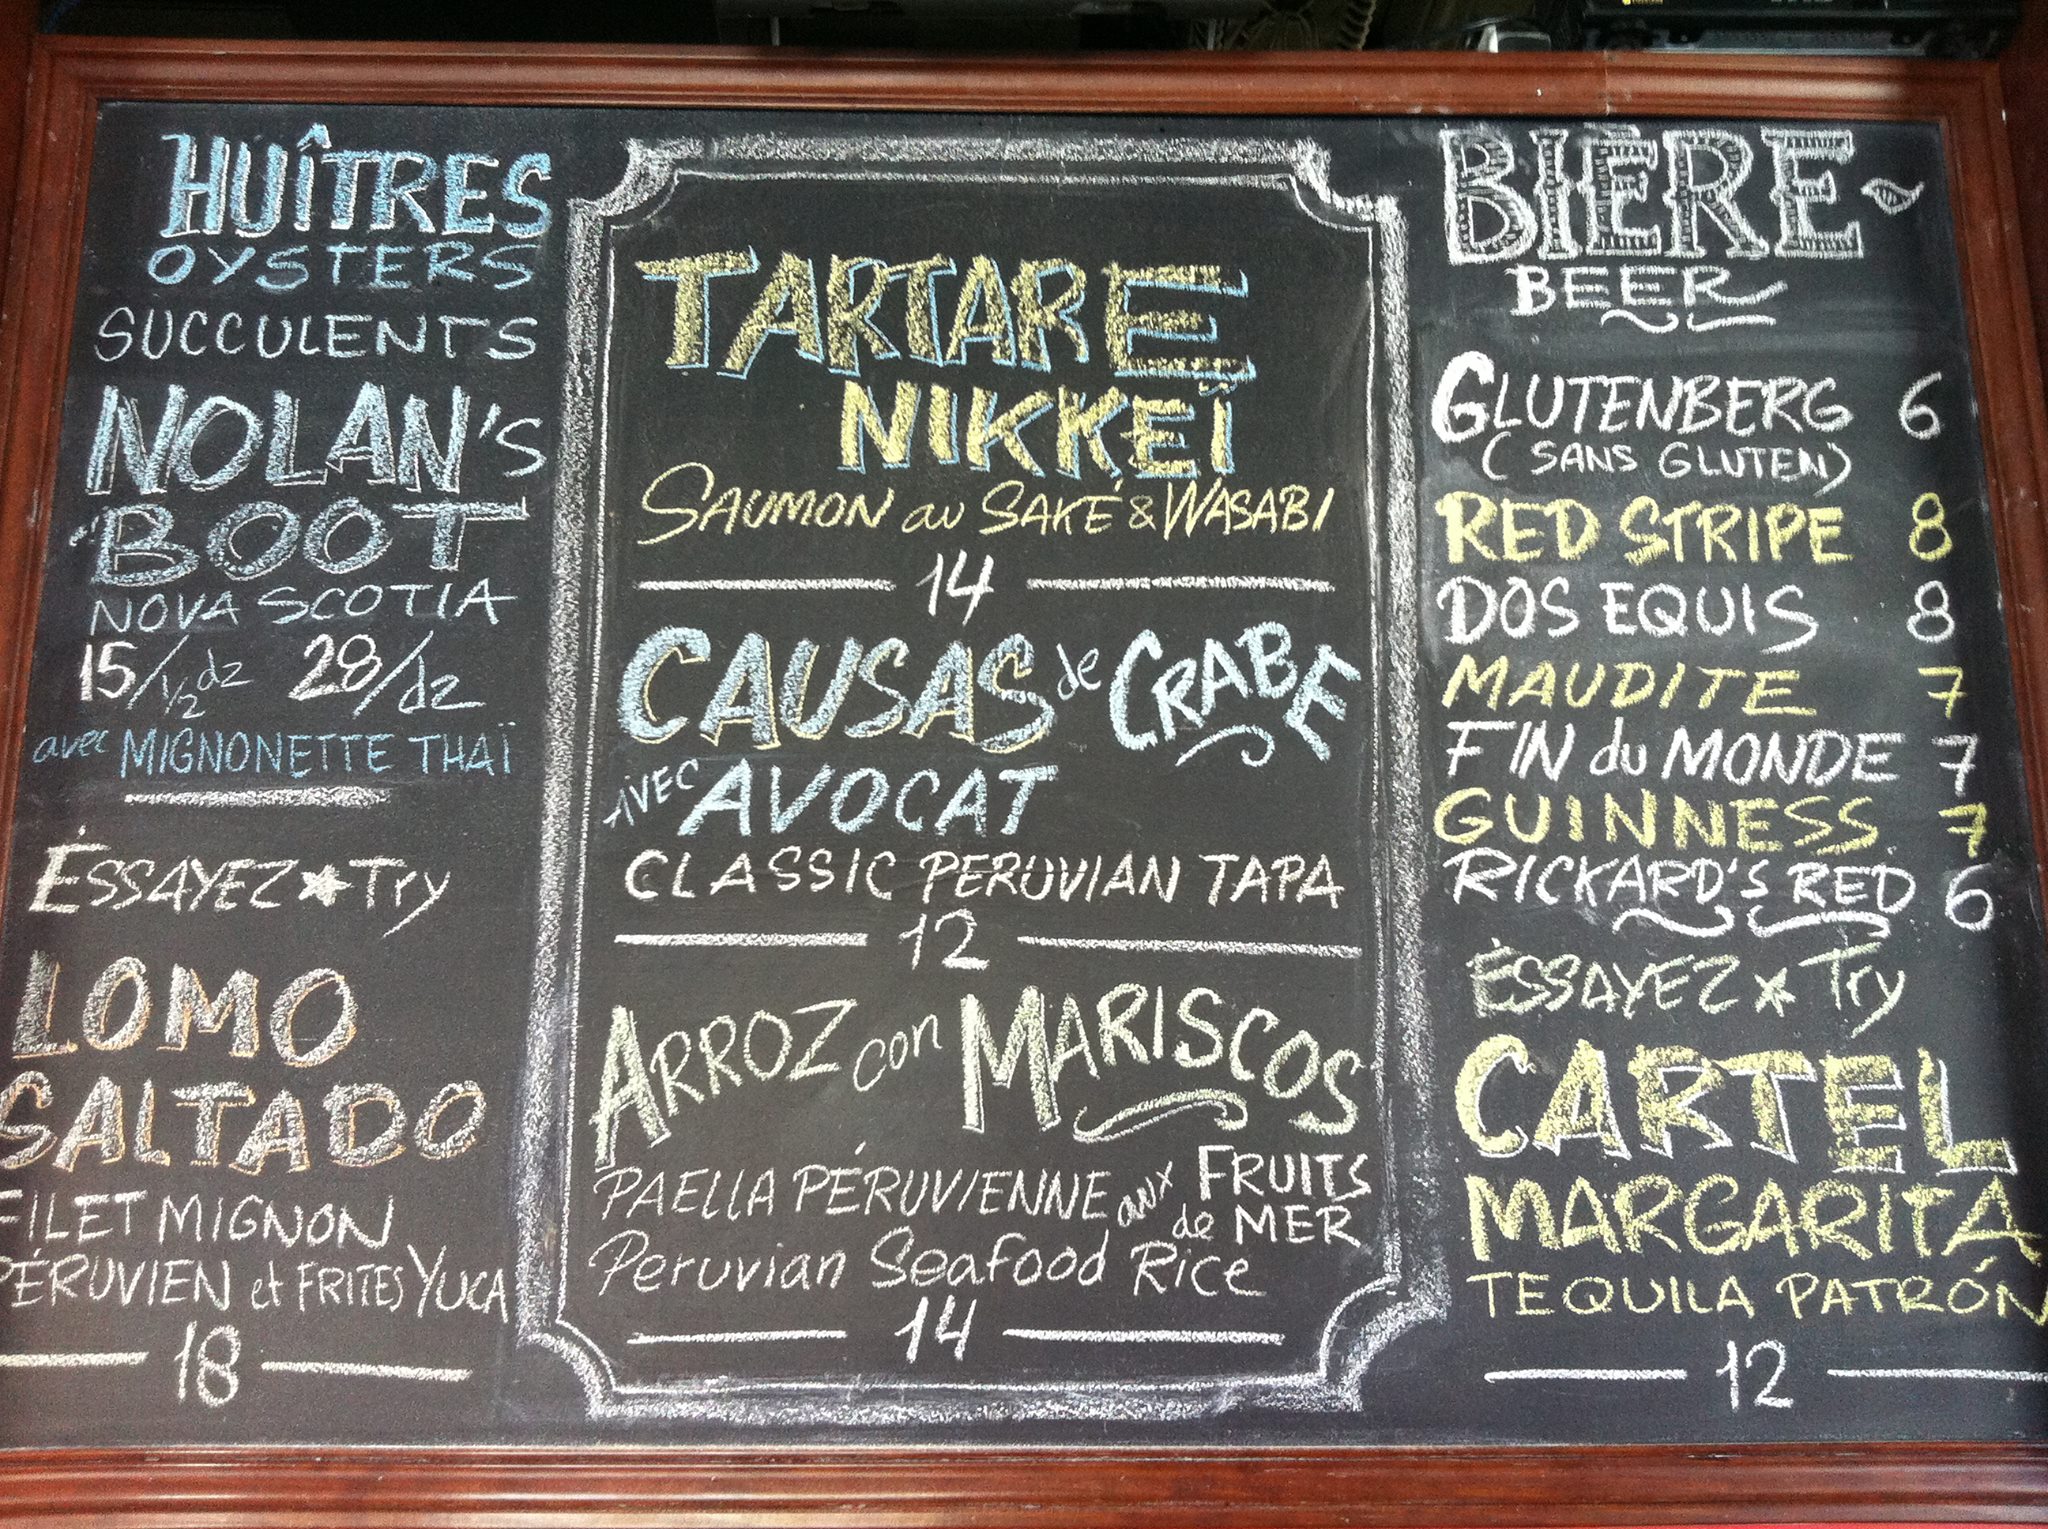 HUÎTRES
OYSTERS
SUCCULENTS
NOLAN'S
BOOT
NOVA SCOTIA
15/½dz 28/dz
avec MIGNONETTE THAÏ
ÉSSAYEZ★Try
LOMO
SALTADO
FILET MIGNON
PÉRUVIEN et FRITES YUCA
18
TARTARE
NIKKEÏ
SAUMON au SAKÉ & WASABI
14
CAUSAS de CRABE
AVEC AVOCAT
CLASSIC PERUVIAN TAPA
12
ARROZ con MARISCOS
PAELLA PÉRUVIENNE aux FRUITS
de MER
Peruvian Seafood Rice
14
BIÈRE
BEER
GLUTENBERG 6
(SANS GLUTEN)
RED STRIPE 8
DOS EQUIS 8
MAUDITE 7
FIN du MONDE 7
GUINNESS 7
RICKARD'S RED 6
ÉSSAYEZ★Try
CARTEL
MARGARITA
TEQUILA PATRÓN
12